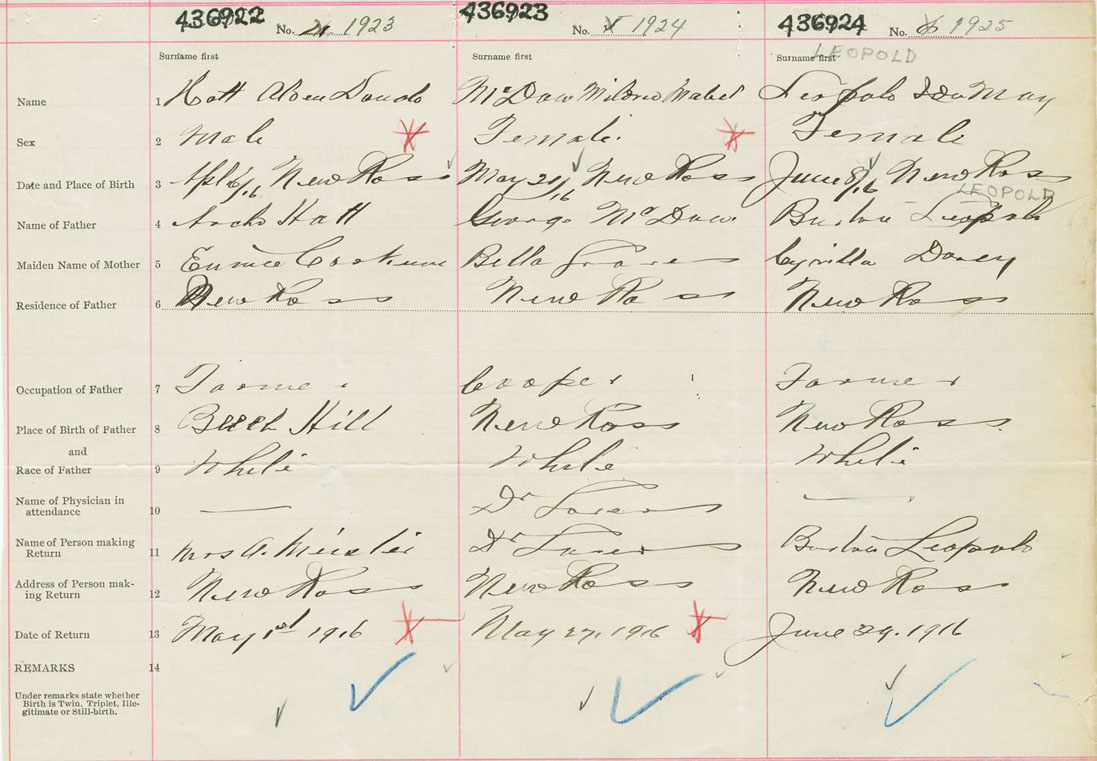 436922 No. 1923 436923 No. 1924 436924 No. 1925
Surname first Surname first Surname first LEOPOLD
Name 1 Hatt Alden McDaw Mildred Mabel Leopold Ida May
Sex 2 Male Female Female
Date and Place of Birth 3 Apl /16 New Ross May /16 New Ross June 8/16 New Ross
LEOPOLD
Name of Father 4 Hatt George McDaw Burton Leopold
Maiden Name of Mother 5 Eunice Bella Daney
Residence of Father 6 New Ross New Ross New Ross
Occupation of Father 7 Farmer Cooper Farmer
Place of Birth of Father 8 Beech Hill New Ross New Ross.
and
Race of Father 9 White White White
Name of Physician in
attendance 10 — Dr —
Name of Person making
Return 11 Mrs A. Dr Burton Leopold
Address of Person mak-
ing Return 12 New Ross New Ross New Ross
Date of Return 13 May 1st 1916 May 27, 1916 June 29, 1916
REMARKS 14
Under remarks state whether
Birth is Twin, Triplet, Ille-
gitimate or Still-birth.